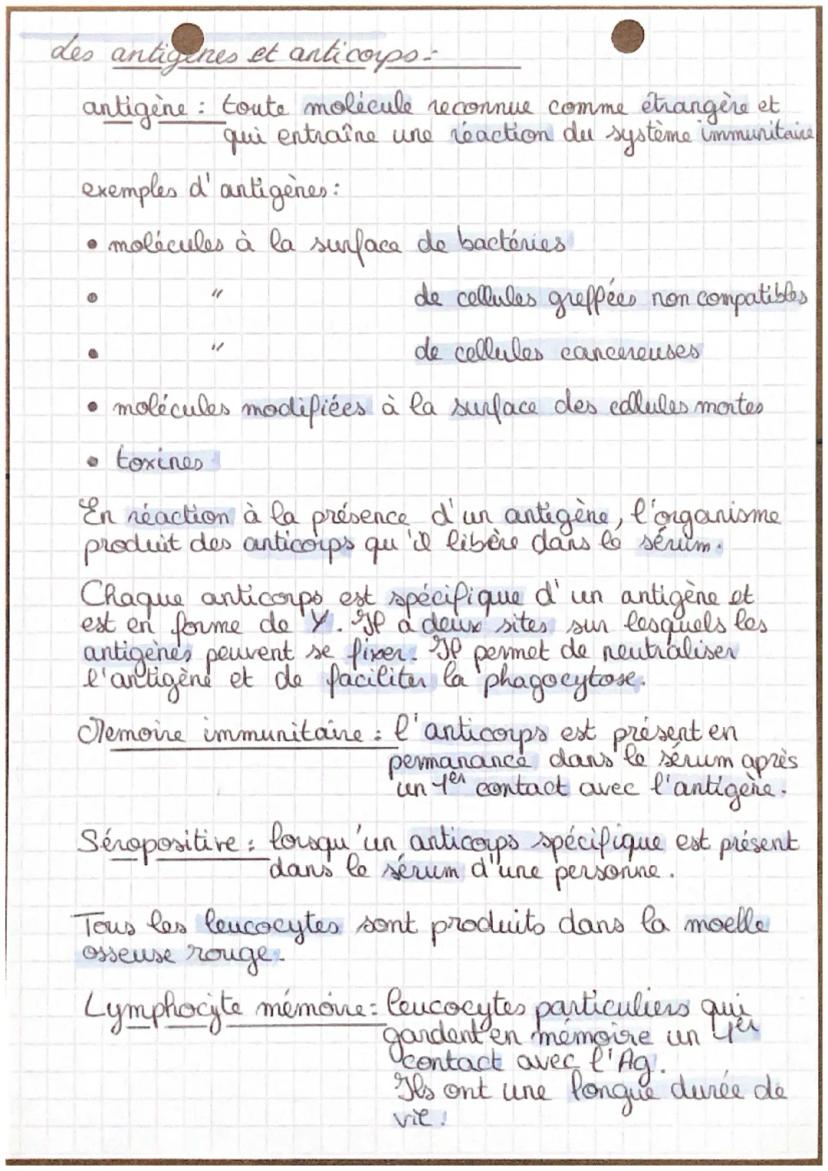 des antigènes et anticorps :
antigène : toute molécule reconnue comme étrangère et
qui entraîne une réaction du système immunitaire
exemples d'antigènes :
• molécules à la surface de bactéries
• " de cellules greffées non compatibles
• " de cellules cancereuses
• molécules modifiées à la surface des cellules mortes
• toxines
En réaction à la présence d'un antigène, l'organisme
produit des anticorps qu'il libère dans le sérum.
Chaque anticorps est spécifique d'un antigène et
est en forme de Y. Il a deux sites sur lesquels les
antigènes peuvent se fixer. Il permet de neutraliser
l'antigène et de faciliter la phagocytose.
Memoire immunitaire : l'anticorps est présent en
permanance dans le sérum après
un 1er contact avec l'antigène.
Séropositive : lorsqu'un anticorps spécifique est présent
dans le sérum d'une personne.
Tous les leucocytes sont produits dans la moelle
osseuse rouge.
Lymphocyte mémoire : leucocytes particuliers qui
gardent en mémoire un 1er
contact avec l'Ag.
Ils ont une longue durée de
vie.